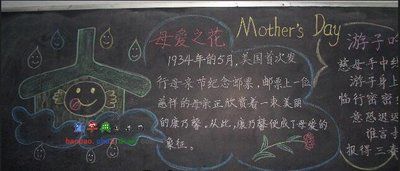 母爱之花
Mother's Day
1934年的5月,美国首次发
行母亲节纪念邮票,邮票上一位
慈祥的母亲正欣赏着一束美丽
的康乃馨。从此,康乃馨便成了母爱的
象征。
游子吟
慈母手中线
游子身上
临行密密
意恐迟迟
谁言寸
报得三春